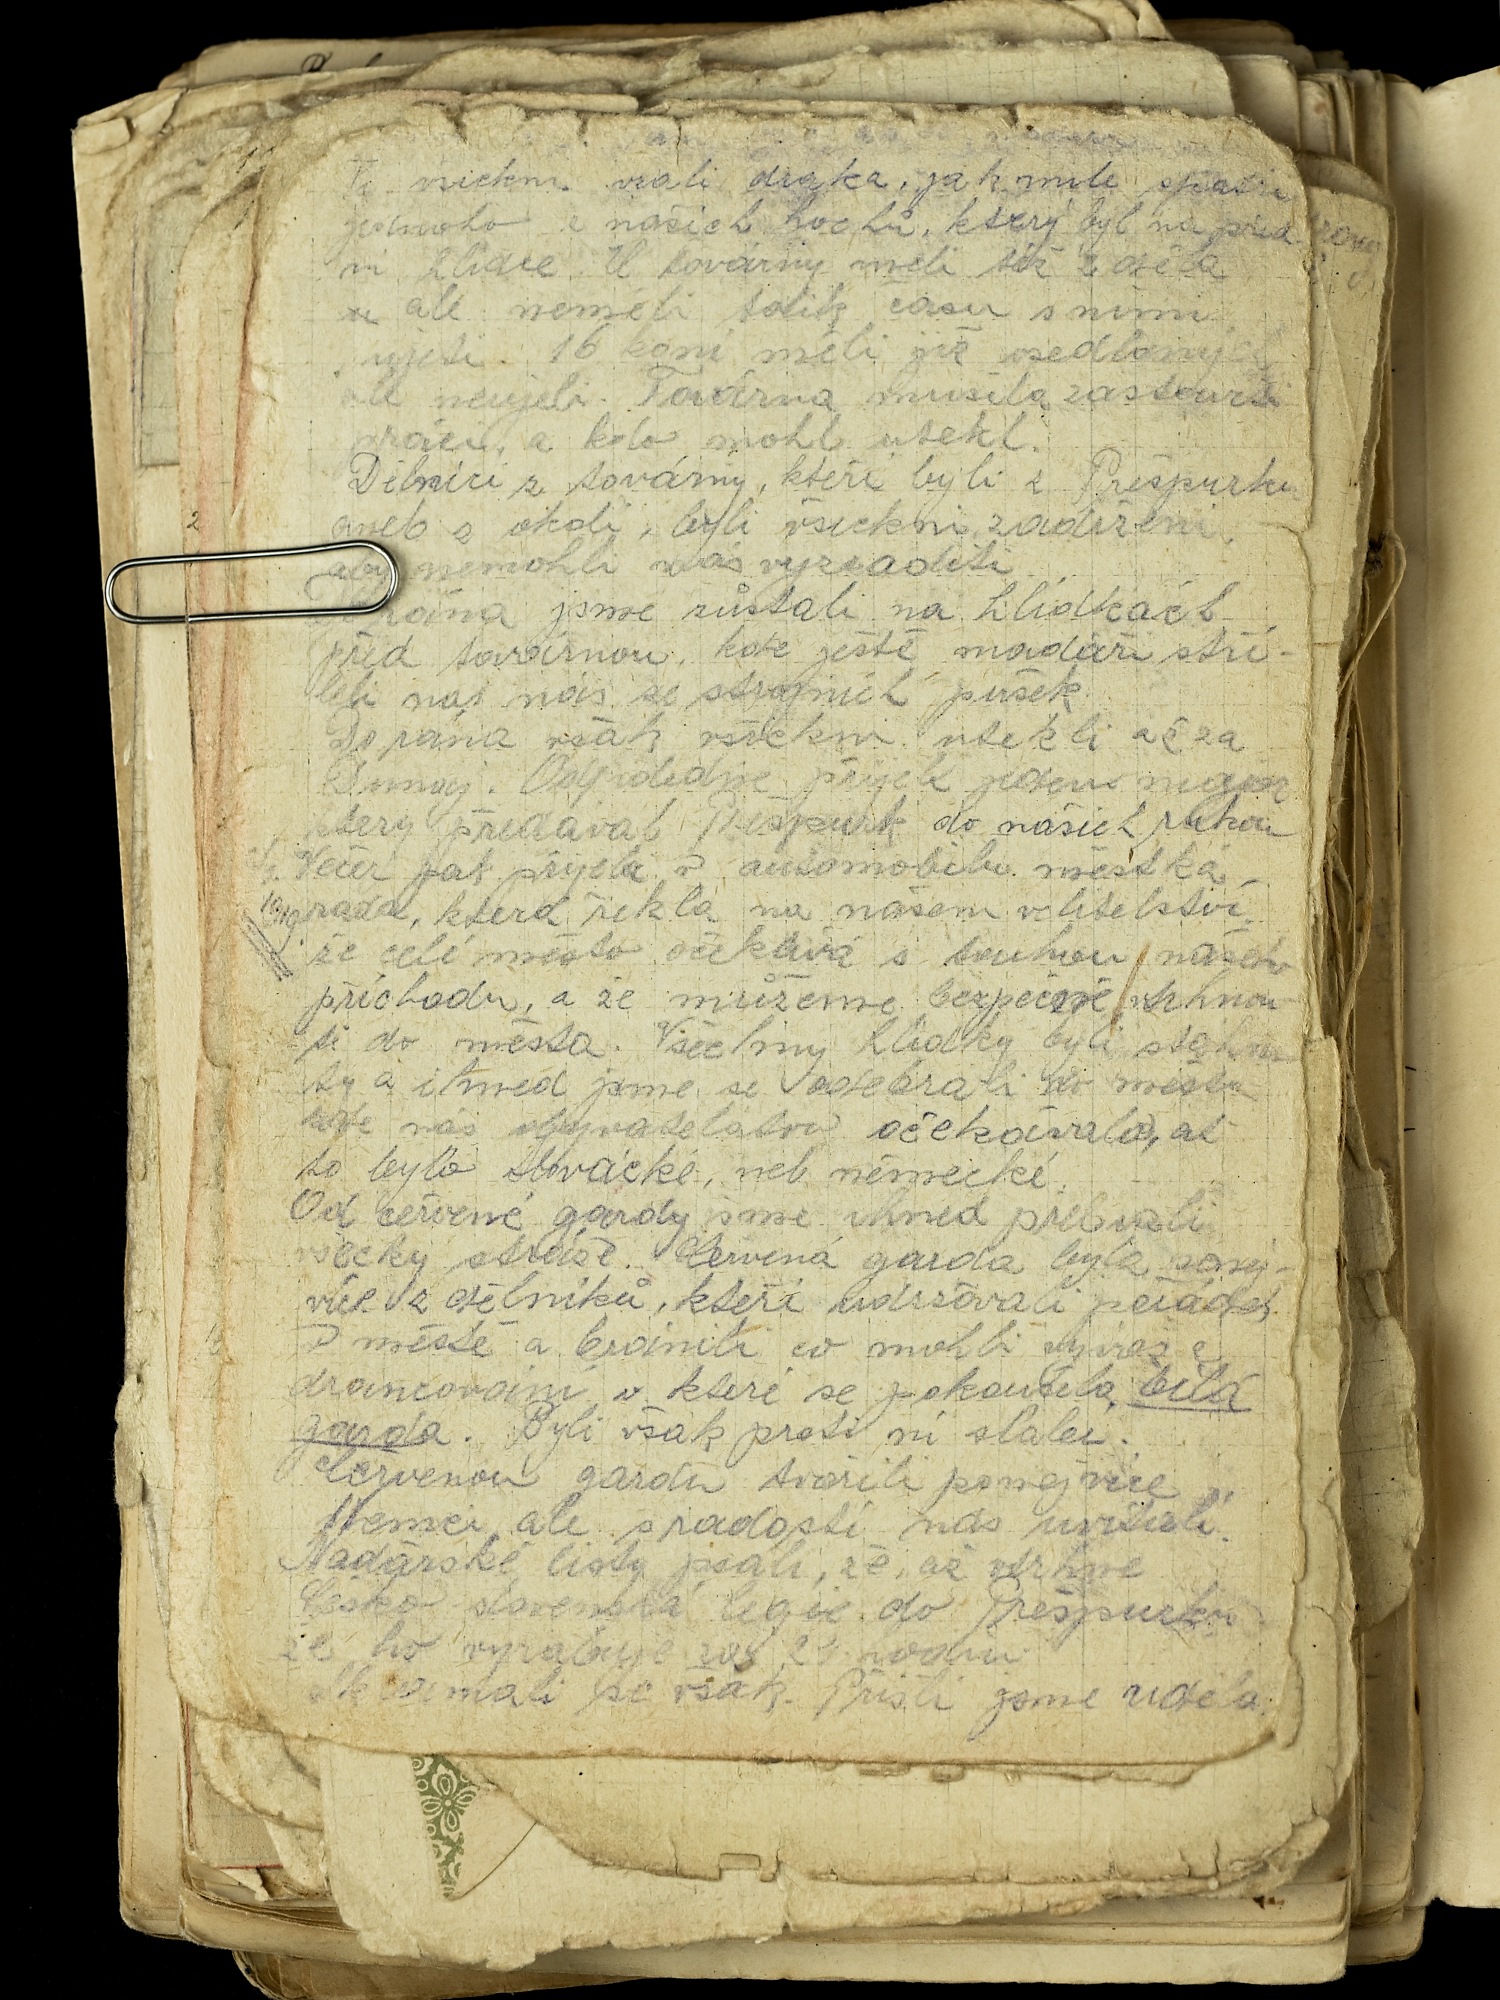 Ti všickni vzali draka, jakmile spatři
jednoho z našich hochů, který byl na před
ní hlídce. U továrny měli též zděla
ale neměli tolik času s nimi
ujeti. 16 koní měli již osedlaných
ale neujeli. Továrna musila zastaviti
práci, a kdo mohl utekl.
Dělníci z továrny, kteří byli z Prešpurku
aneb z okolí, byli všickni zadrženi,
aby nemohli nás vyzraditi
Do rána jsme zůstali na hlídkách
před továrnou, kde ještě madáři stří-
leli na nás ze strojních pušek.
Do rána však všickni utekli až za
Dunaj. Odpoledne přijel jeden major
který předával Prešpurk do našich rukou
Večer pak přijela v automobilu městká
1919
rada, která řekla na našem velitelství,
že celé město očekává s touhou našeho
příchodu, a že můžeme bezpečně vtrhnou-
ti do města. Všechny hlídky byli stáhnu
ty a ihned jsme se odebrali do města
kde nás obyvatelstvo očekávalo, ať
to bylo slovácké, neb německé.
Od červené gardy jsme ihned přebrali
všecky stráže. Červená garda byla ponej-
více z dělníků, kteří udržovali pořádek
v městě a bránili co mohli
drancování o které se pokoušela bílá
garda. Byli však proti ní slabí.
Červenou gardu tvořili ponejvíce
Němci, ale s radostí nás uvítali.
Madárské listy psali, že, až vtrhne
Česko slovenská legie do Prešpurku
že ho vyrabuje za 24 hodin
Sklamali se však. Přišli jsme udělа